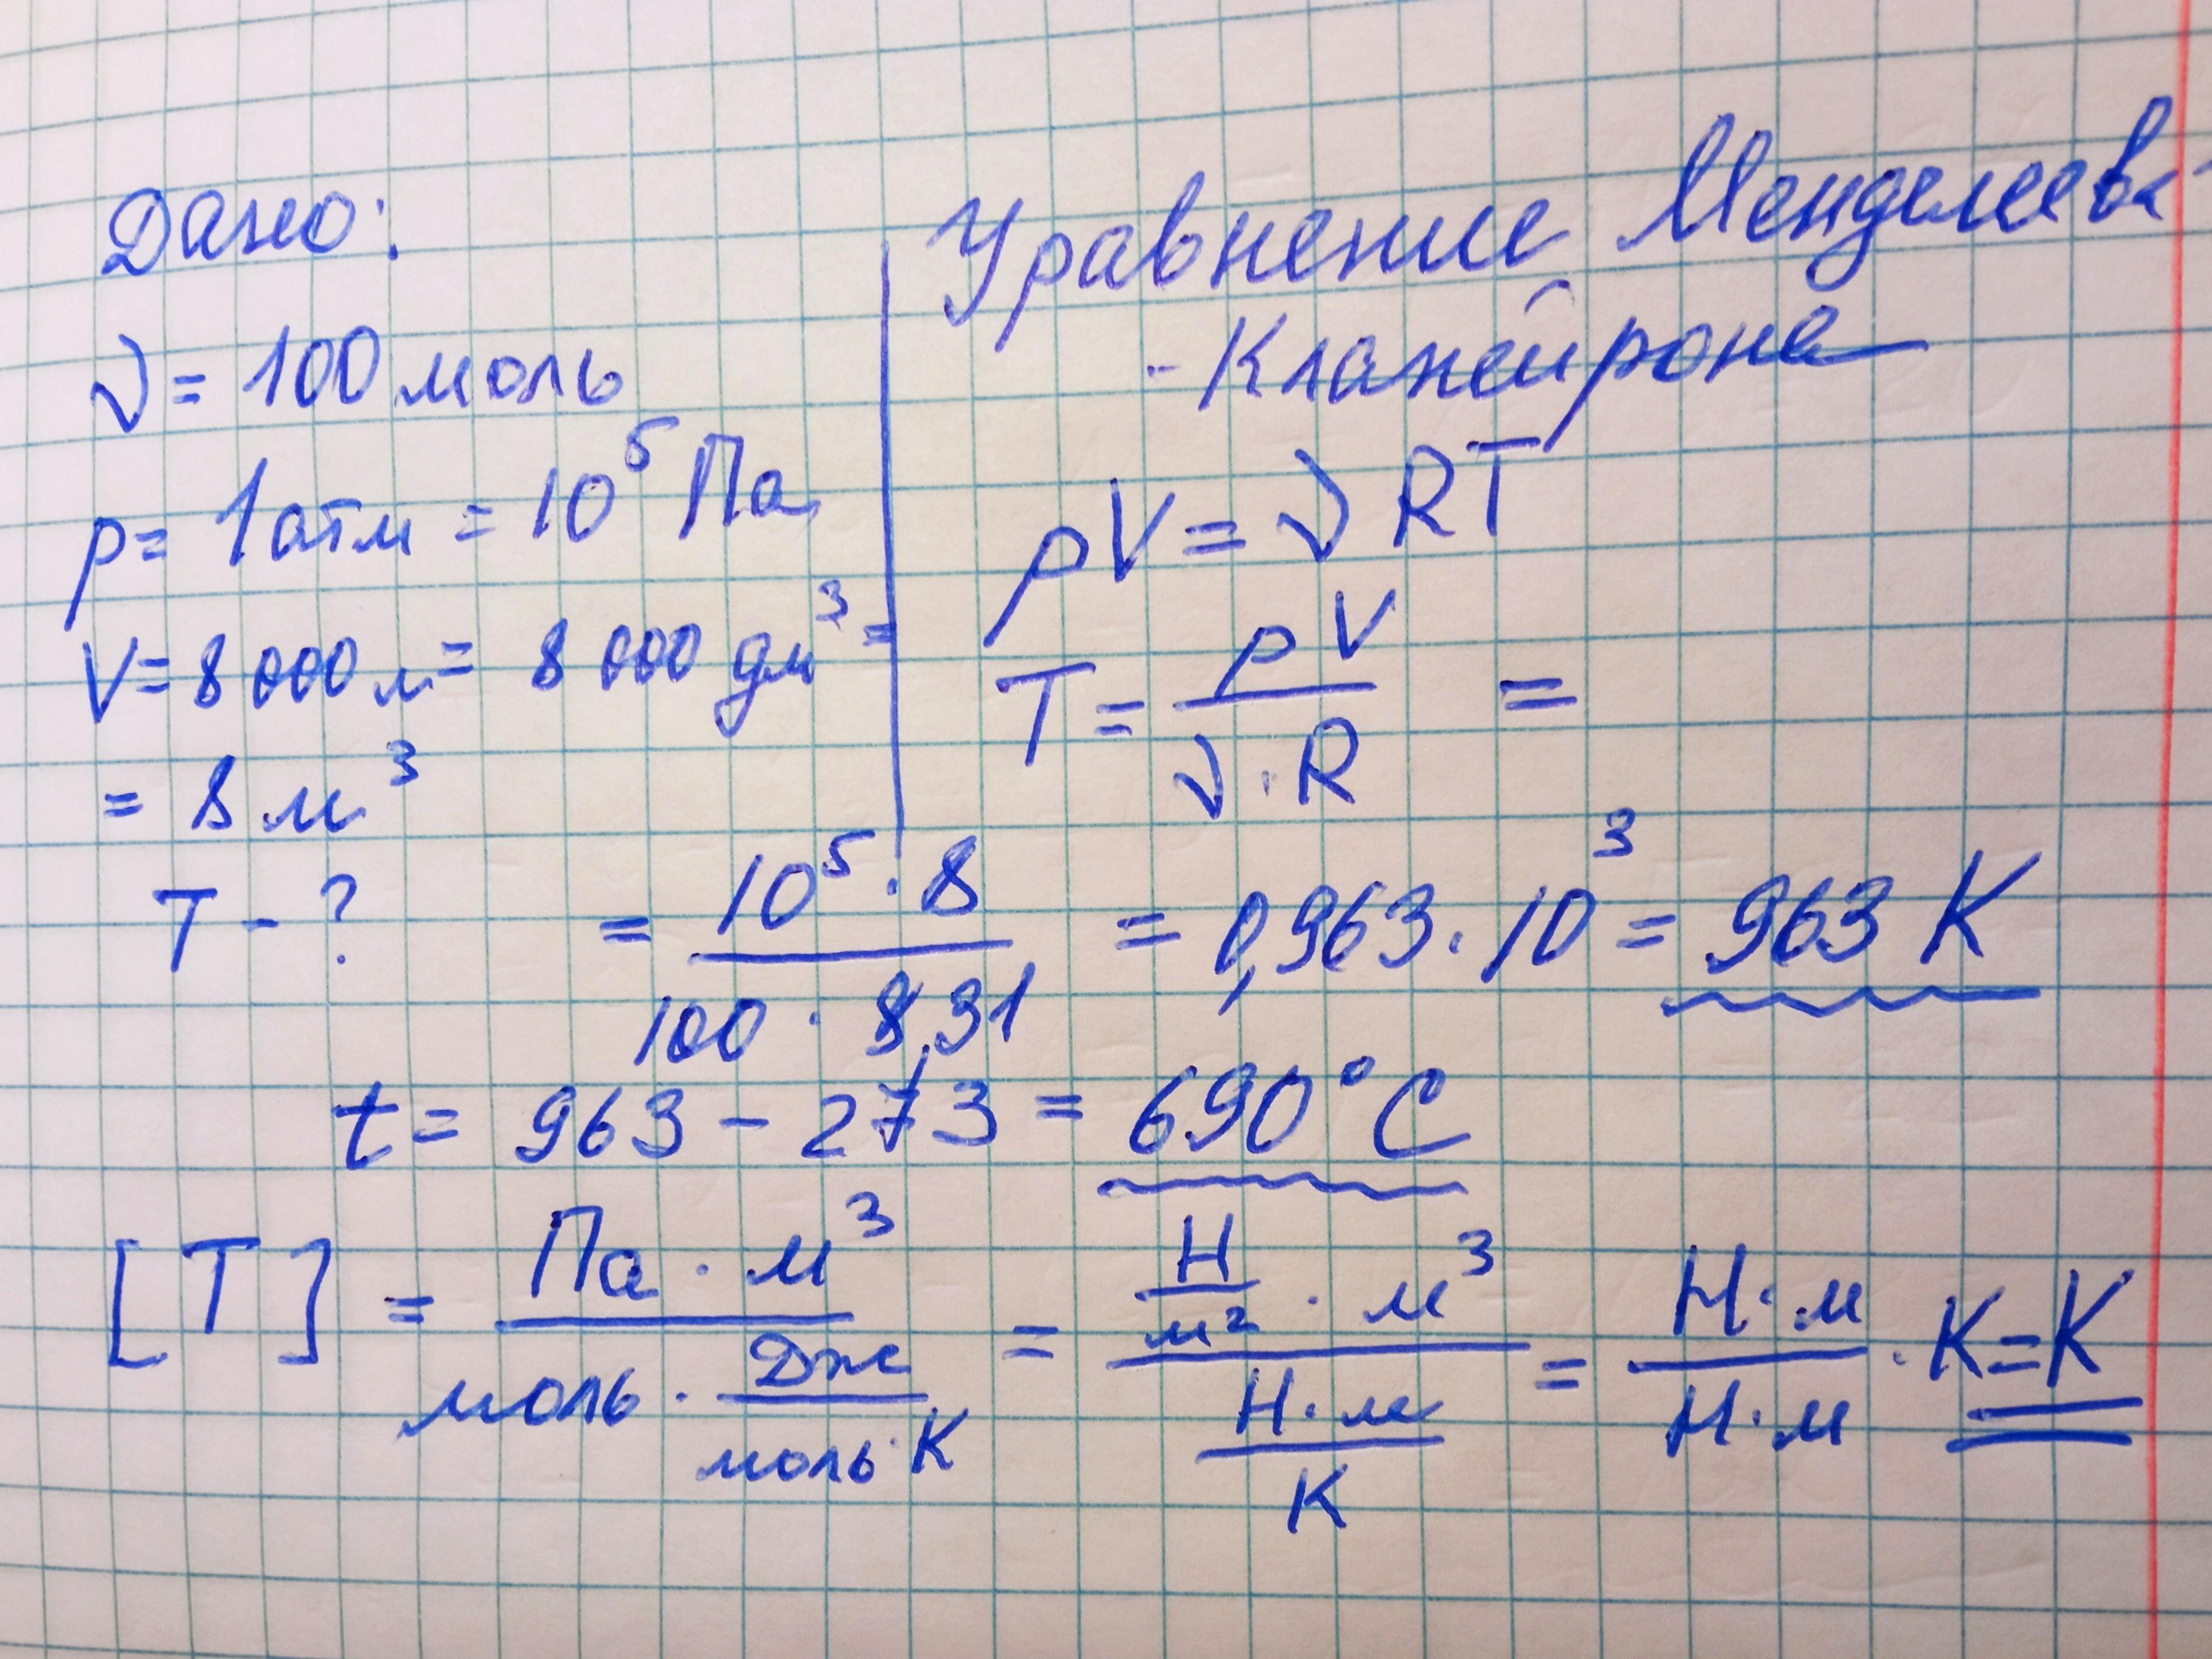 Дано:
ν = 100 моль
p = 1 атм = 10⁵ Па
V = 8 000 л = 8 000 дм³ =
= 8 м³
T - ?
Уравнение Менделеева-
- Клапейрона
pV = νRT
T = pV / ν · R =
= 10⁵ · 8 / 100 · 8,31 = 0,963 · 10³ = 963 K
t = 963 - 273 = 690°C
[T] = Па · м³ / моль · Дж / моль · К = Н / м² · м³ / Н · м / К = Н · м / Н · м · К = К